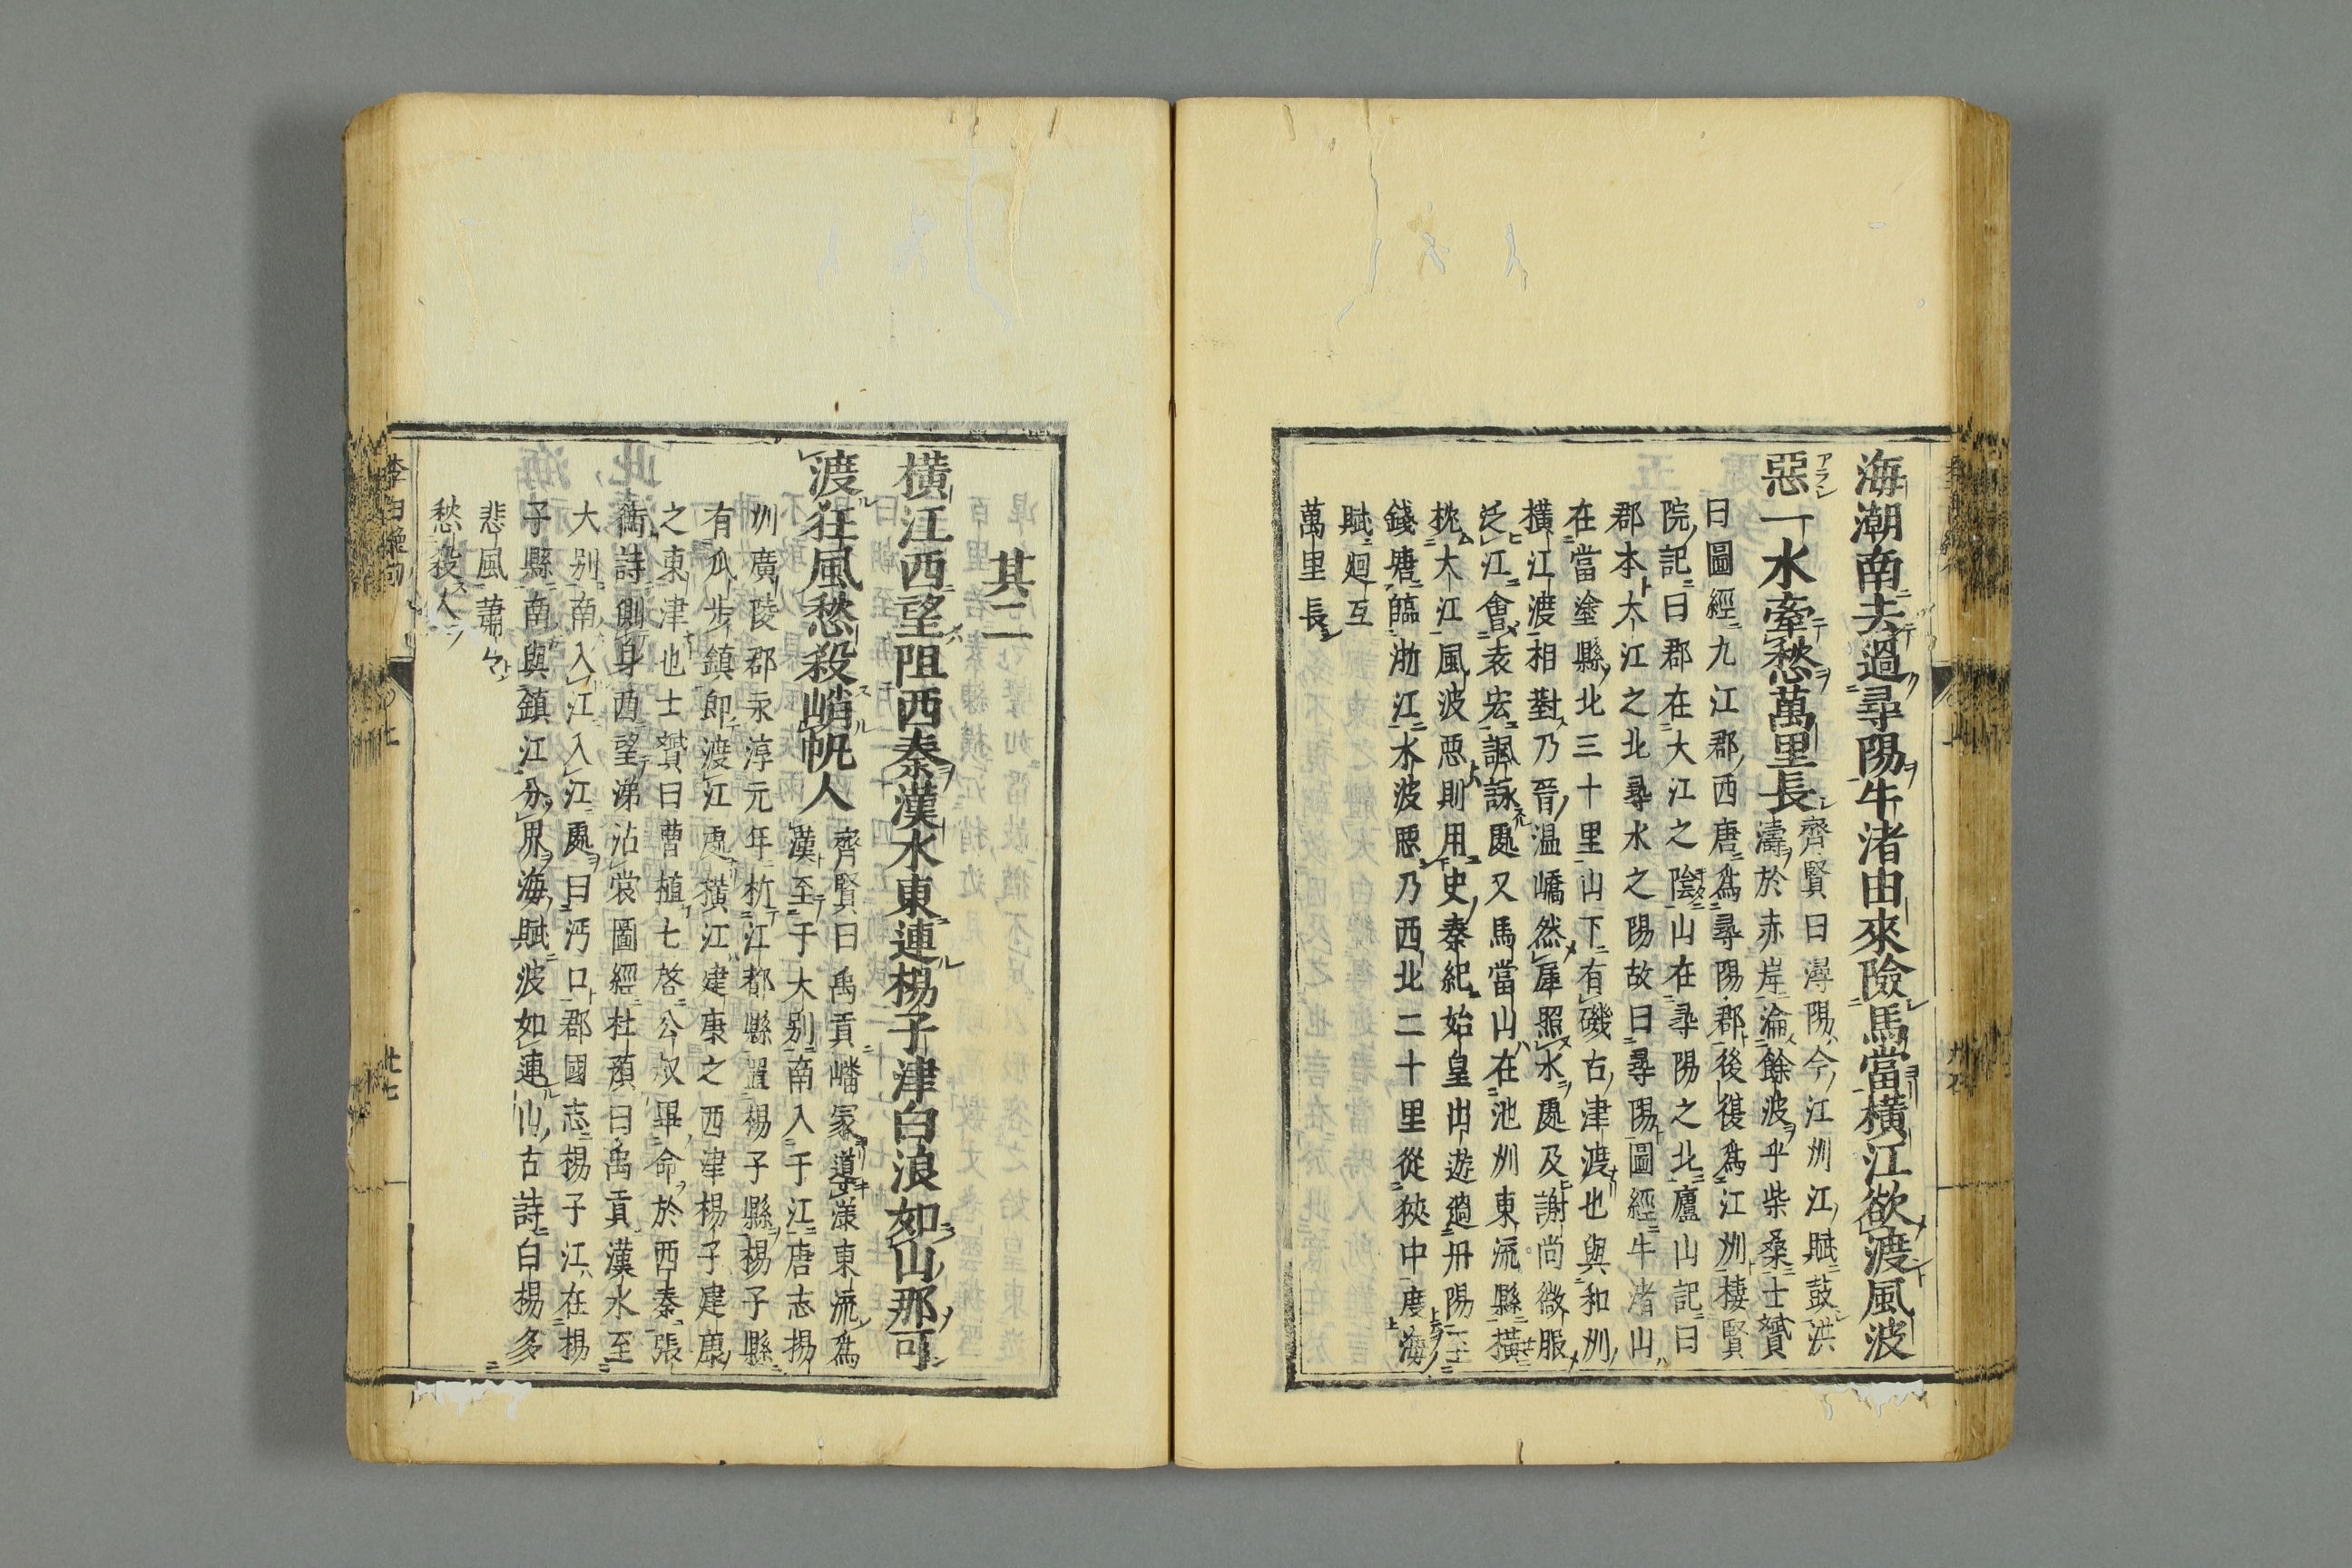 海潮南去過尋陽牛渚由來險馬當橫江欲渡風波
惡一水牽愁萬里長
齊賢曰潯陽今江州江賦鼓洪
濤於赤岸淪餘波乎柴桑士贇
曰圖經九江郡西唐爲尋陽郡後復爲江州棲賢
院記曰郡在大江之陰山在尋陽之北廬山記曰
郡本大江之北尋水之陽故曰尋陽圖經牛渚山
在當塗縣北三十里山下有磯古津渡也與和州
橫江渡相對乃晉温嶠然犀照水處及謝尚微服
泛江會袁宏諷詠處又馬當山在池州東流縣橫
枕大江風波惡則用史秦紀始皇出遊過丹陽至
錢塘臨浙江水波惡乃西北二十里從狹中度海
賦廻互
萬里長
其二
橫江西望阻西秦漢水東連楊子津白浪如山那可
渡狂風愁殺峭帆人
齊賢曰禹貢嶓冢導漾東流爲
漢至于大别南入于江唐志揚
州廣陵郡永淳元年析江都縣置楊子縣楊子縣
有瓜步鎮即渡江處橫江建康之西津楊子建康
之東津也士贇曰曹植七啓公叔畢命於西秦張
衡詩側身西望涕沾裳圖經杜預曰禹貢漢水至
大别南入江入江處曰沔口郡國志揚子江在揚
子縣南與鎮江分界海賦波如連山古詩白楊多
悲風蕭
愁殺人